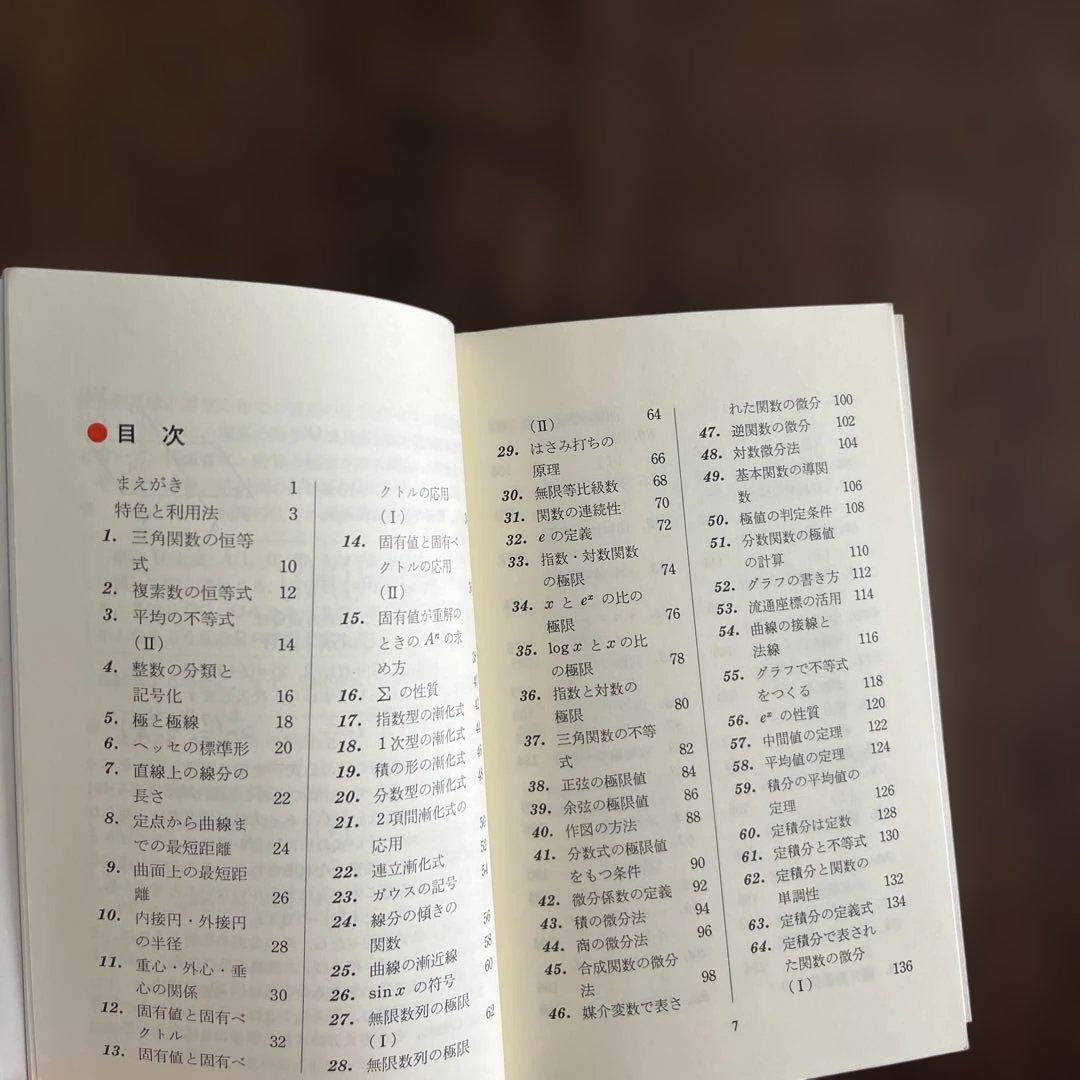 目 次
まえがき 1
特色と利用法 3
1. 三角関数の恒等
式 10
2. 複素数の恒等式 12
3. 平均の不等式
(II) 14
4. 整数の分類と
記号化 16
5. 極と極線 18
6. ヘッセの標準形 20
7. 直線上の線分の
長さ 22
8. 定点から曲線ま
での最短距離 24
9. 曲面上の最短距
離 26
10. 内接円・外接円
の半径 28
11. 重心・外心・垂
心の関係 30
12. 固有値と固有ベ
クトル 32
13. 固有値と固有ベ
クトルの応用
(I)
14. 固有値と固有ベ
クトルの応用
(II)
15. 固有値が重解の
ときの Aⁿ の求
め方
16. Σ の性質
17. 指数型の漸化式
18. 1次型の漸化式 44
19. 積の形の漸化式 46
20. 分数型の漸化式 48
21. 2項間漸化式の
応用 50
22. 連立漸化式 52
23. ガウスの記号 54
24. 線分の傾きの
関数 56
25. 曲線の漸近線 58
26. sin x の符号 60
27. 無限数列の極限
(I) 62
28. 無限数列の極限
(II) 64
29. はさみ打ちの
原理 66
30. 無限等比級数 68
31. 関数の連続性 70
32. e の定義 72
33. 指数・対数関数
の極限 74
34. x と eˣ の比の
極限 76
35. log x と x の比
の極限 78
36. 指数と対数の
極限 80
37. 三角関数の不等
式 82
38. 正弦の極限値 84
39. 余弦の極限値 86
40. 作図の方法 88
41. 分数式の極限値
をもつ条件 90
42. 微分係数の定義 92
43. 積の微分法 94
44. 商の微分法 96
45. 合成関数の微分
法 98
46. 媒介変数で表さ
れた関数の微分 100
47. 逆関数の微分 102
48. 対数微分法 104
49. 基本関数の導関
数 106
50. 極値の判定条件 108
51. 分数関数の極値
の計算 110
52. グラフの書き方 112
53. 流通座標の活用 114
54. 曲線の接線と
法線 116
55. グラフで不等式
をつくる 118
56. eˣ の性質 120
57. 中間値の定理 122
58. 平均値の定理 124
59. 積分の平均値の
定理 126
60. 定積分は定数 128
61. 定積分と不等式 130
62. 定積分と関数の
単調性 132
63. 定積分の定義式 134
64. 定積分で表され
た関数の微分
(I) 136
7